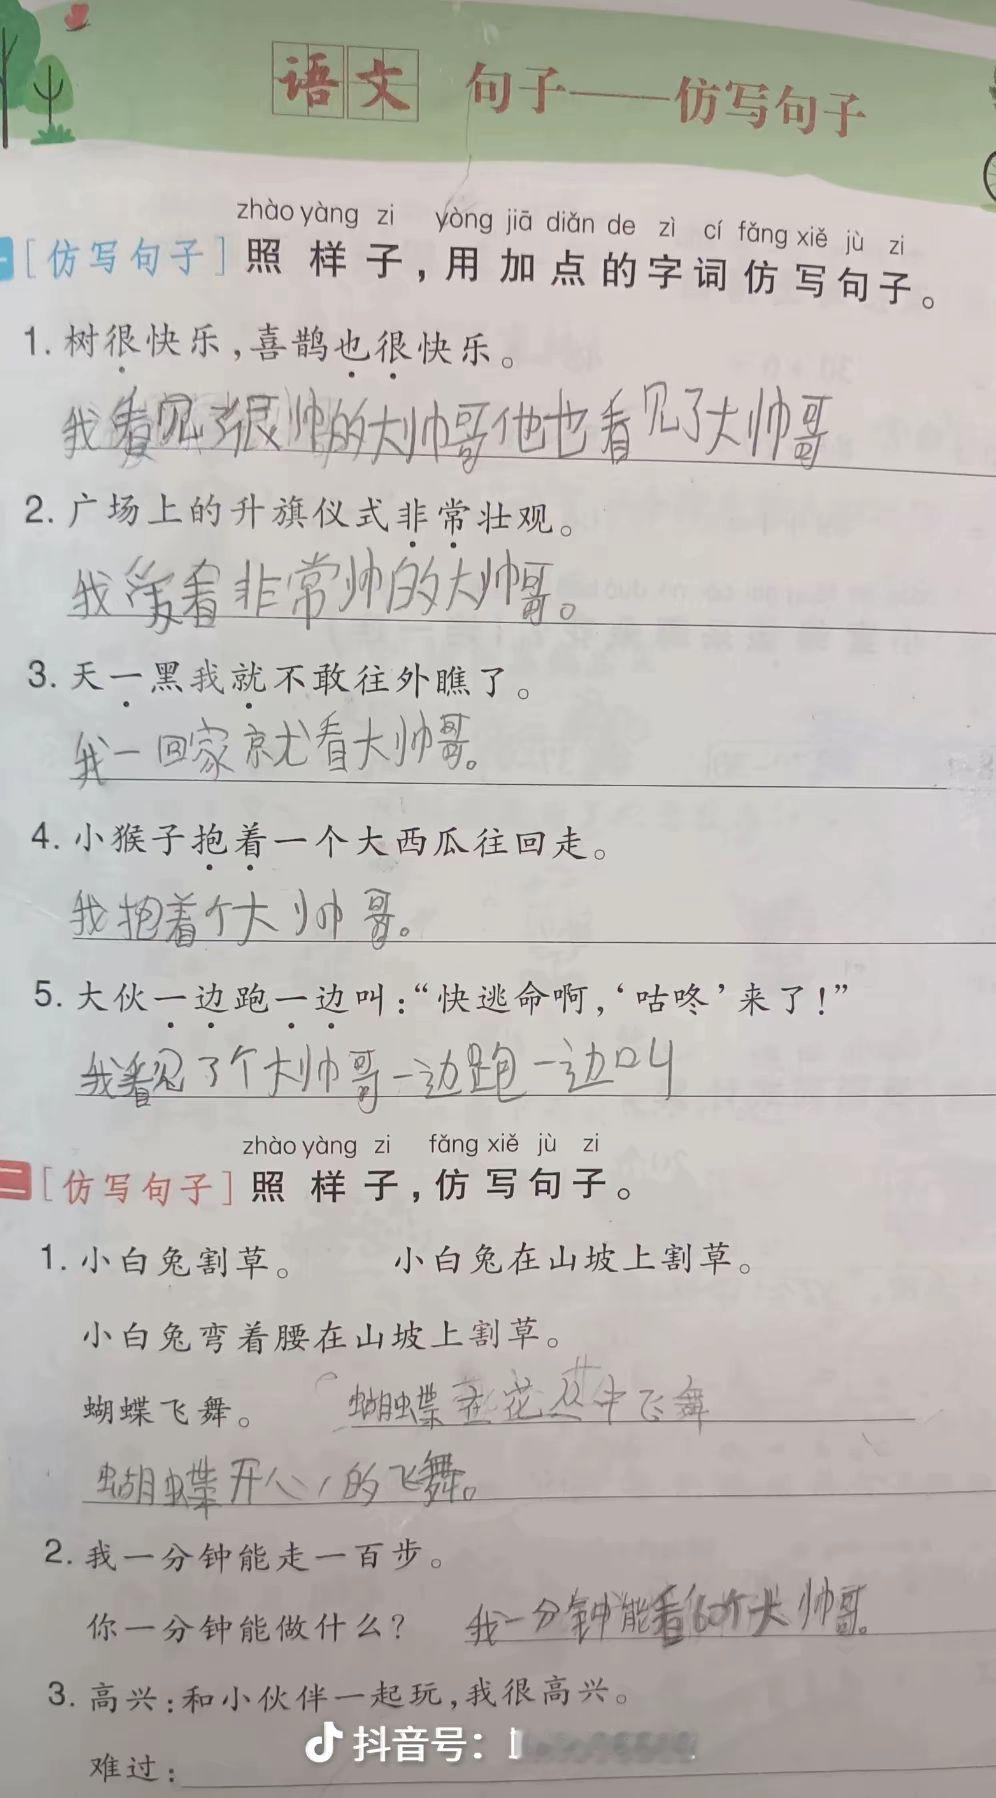 语文 句子——仿写句子
zhào yàng zi yòng jiā diǎn de zì cí fǎng xiě jù zi
一[仿写句子]照样子,用加点的字词仿写句子。
1. 树很快乐,喜鹊也很快乐。
我看见了很帅的大帅哥他也看见了大帅哥
2. 广场上的升旗仪式非常壮观。
我爱看非常帅的大帅哥。
3. 天一黑我就不敢往外瞧了。
我一回家就看大帅哥。
4. 小猴子抱着一个大西瓜往回走。
我抱着个大帅哥。
5. 大伙一边跑一边叫:“快逃命啊,‘咕咚’来了!”
我看见了个大帅哥一边跑一边叫
zhào yàng zi fǎng xiě jù zi
二[仿写句子]照样子,仿写句子。
1. 小白兔割草。 小白兔在山坡上割草。
小白兔弯着腰在山坡上割草。
蝴蝶飞舞。 蝴蝶在花丛中飞舞
蝴蝶开心的飞舞。
2. 我一分钟能走一百步。
你一分钟能做什么? 我一分钟能看60个大帅哥。
3. 高兴:和小伙伴一起玩,我很高兴。
抖音号:
难过: